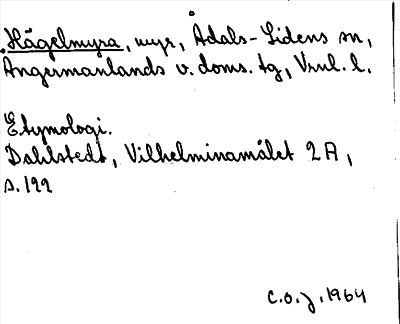 Hägelmyra, myr, Ådals-Lidens sn,
Ångermanlands v. doms. tg, Vnl. l.
Etymologi.
Dahlstedt, Vilhelminamålet 2A,
s. 122
C.O.J. 1964